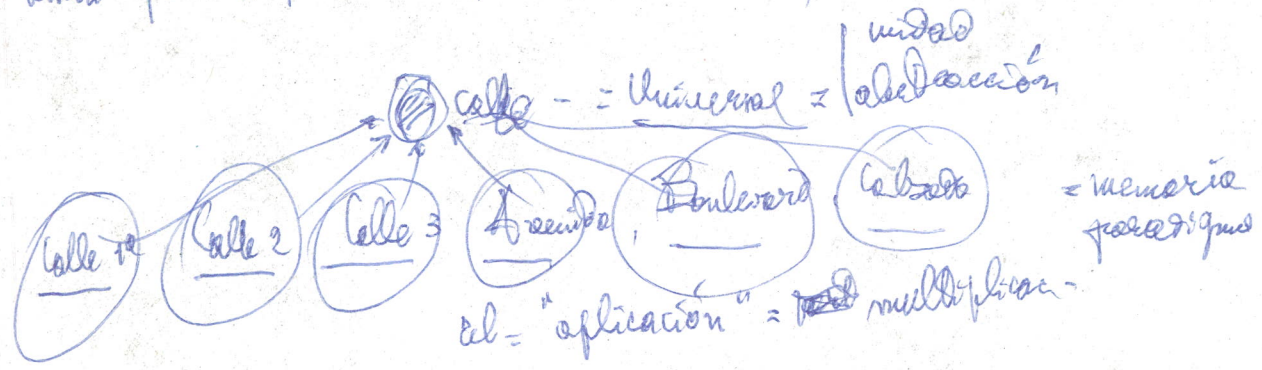 unidad
calle - = Universal = abstracción
Calle 1ª Calle 2 Calle 3 Avenida, Boulevard Calzada = memoria
paradigma
"aplicación" = multiplicac-